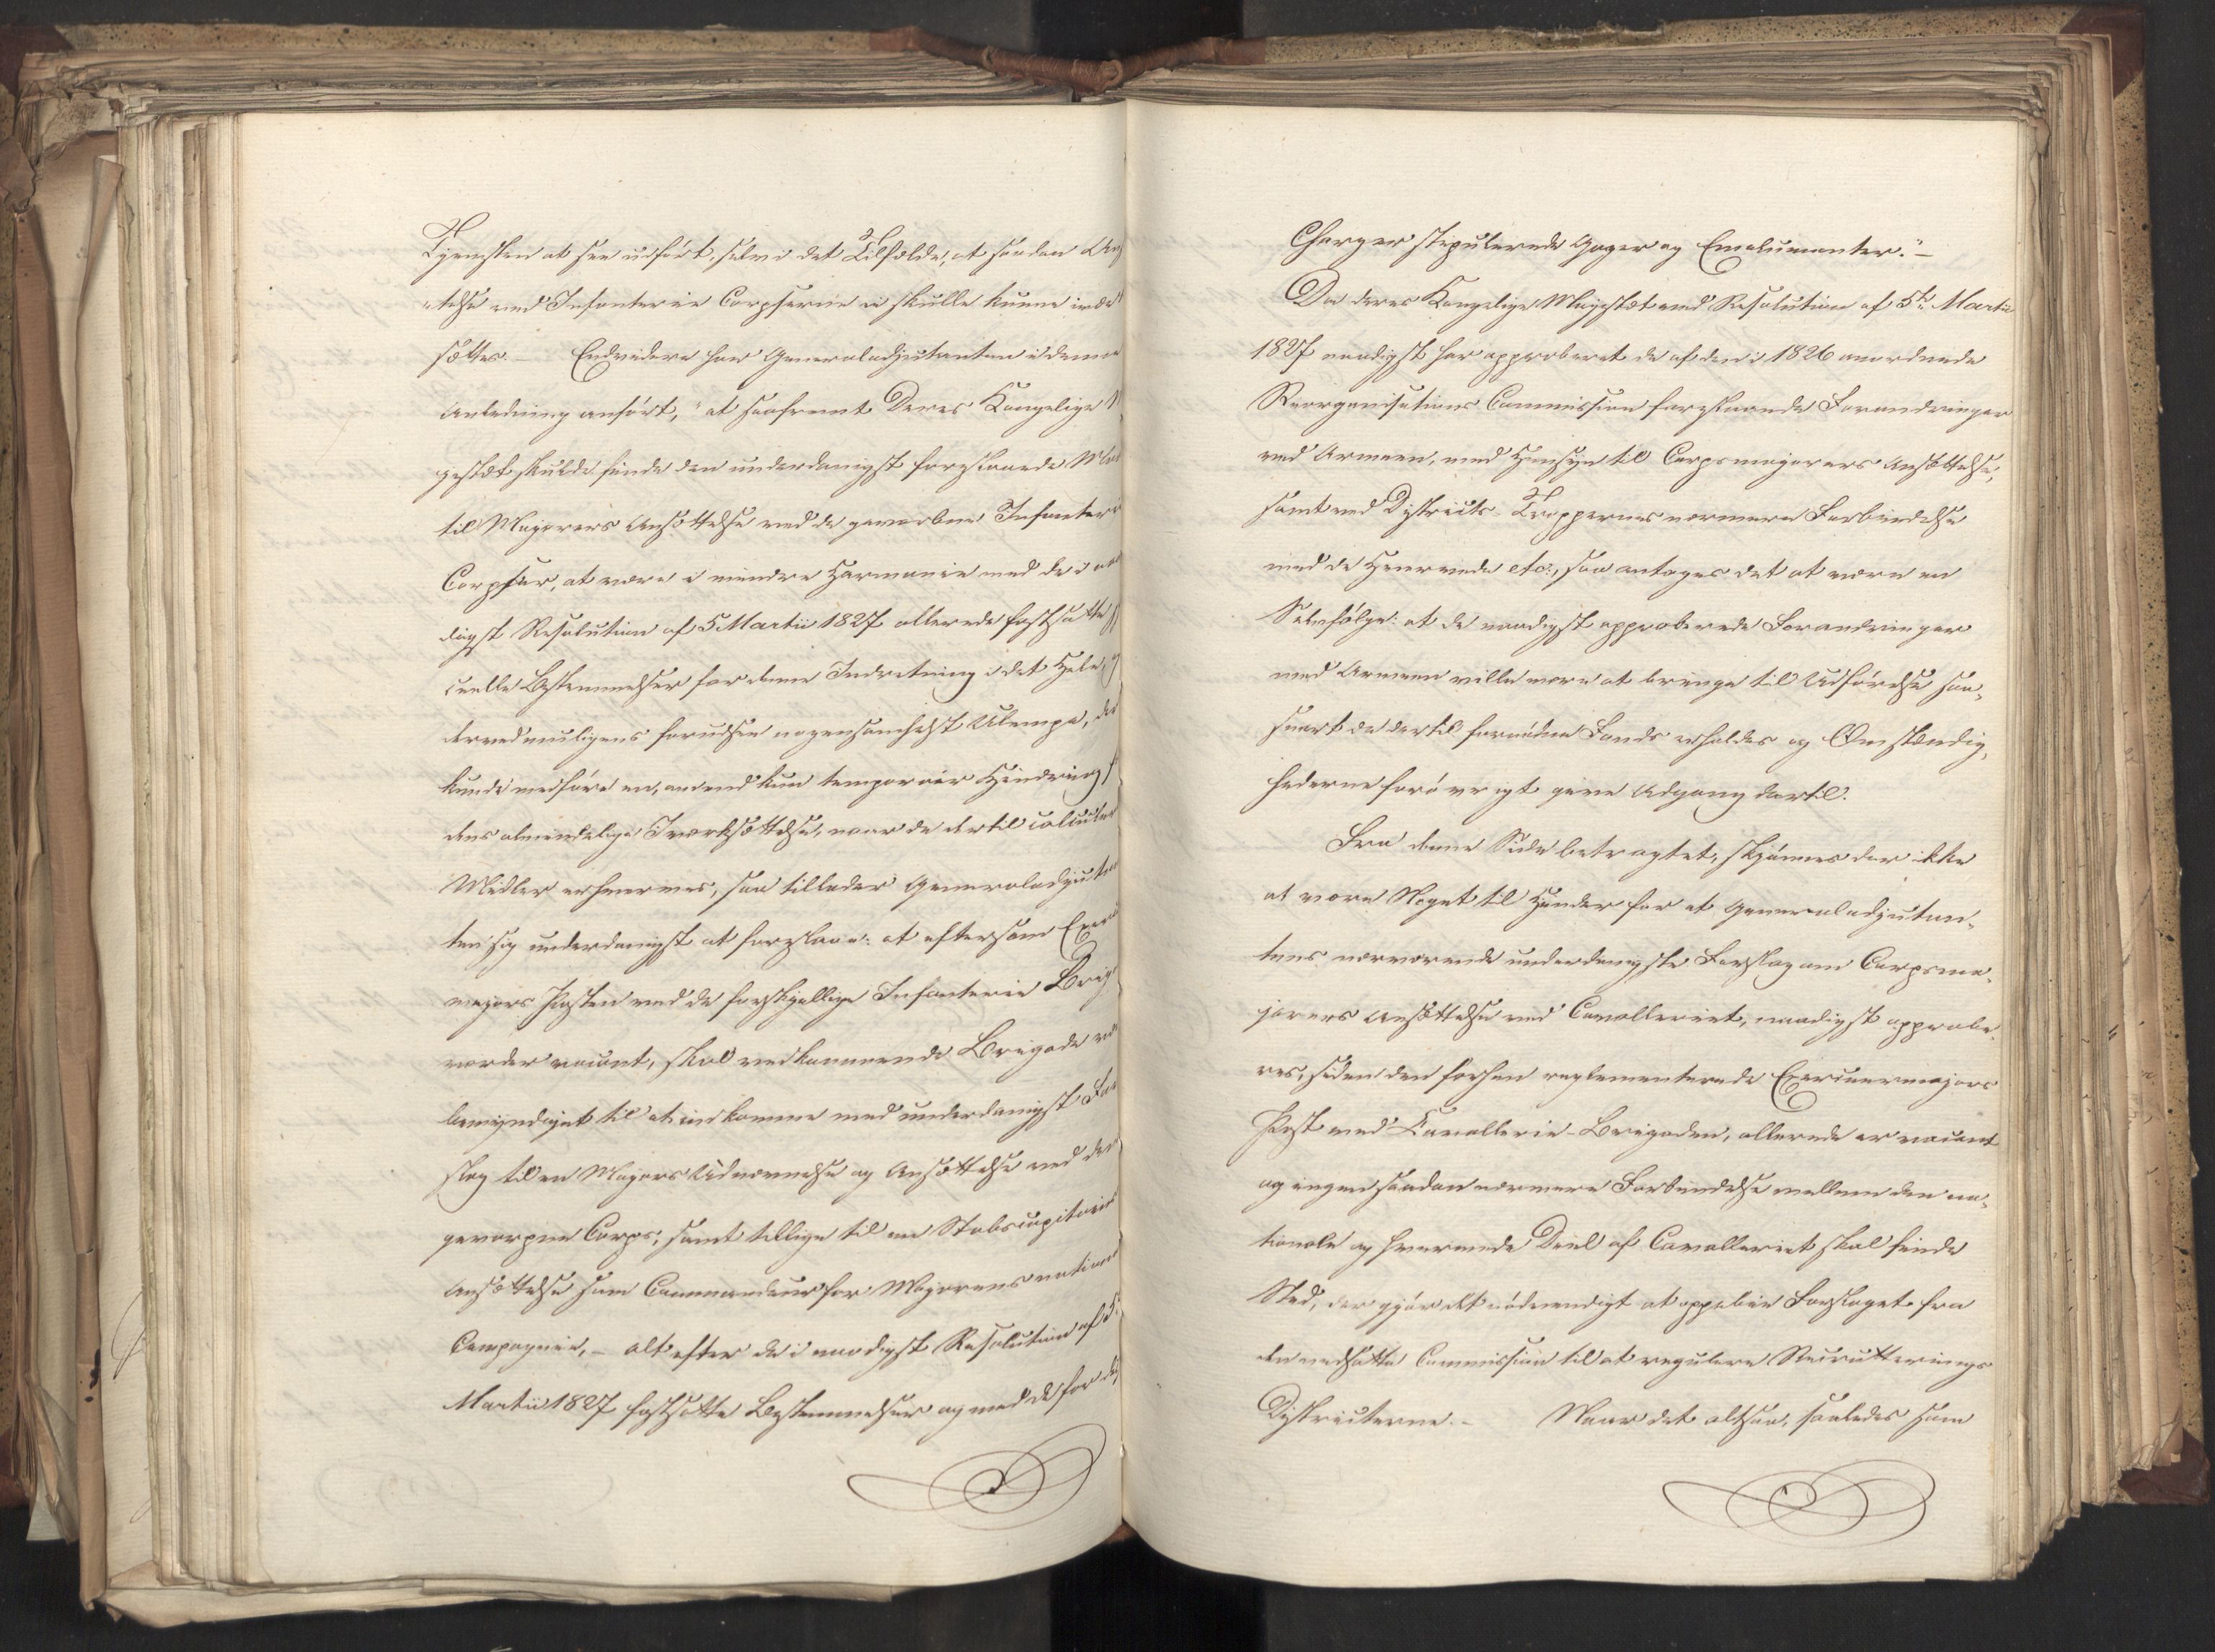 Tjenesten at see udført, selv i det Tilfælde, at saadan An
-telse ved Infanterie Corpserne ei skulle kunne iværk
sættes. — Endvidere har Generaladjutanten i denne
Anledning anført, "at saafremt Deres Kongelige M
gestæt skulde finde den underdanigst foreslaaede Maa
til Majorers Ansættelse ved de gevorbne Infanteri
Corpser, at være i mindre Harmonie med de i naa
digst Resolution af 5 Martii 1827 allerede fastsatte
cielle Bestemmelser for denne Indretning i det Hele,
derved muligens forudsee nogensomhelst Ulempe, der
kunde medføre en, om end kun temporair Hindring f
dens almindelige Iværksættelse, naar de dertil calculer
Midler erhverves, saa tillader Generaladjutan
ten sig underdanigst at foreslaae: at eftersom Exerc
majors Posten ved de forskjellige Infanterie Brig
vorder vacant, skal vedkommende Brigade væ
bemyndiget til at indkomme med underdanigst For
slag til en Majors Udnævnelse og Ansættelse ved det
gevorpne Corps, samt tillige til en Stabscapitains
Ansættelse som Commandeur for Majorens national
Compagnie, — alt efter de i naadigst Resolution af 5.
Martii 1827 fastsatte Bestemmelser og med de for dis
Charger stipulerede Gager og Emolumenter." —
Da Deres Kongelige Majestæt ved Resolution af 5te Martii
1827 naadigst har approberet de af den i 1826 anordnede
Reorganisations Commission foreslaaede Forandringer
ved Armeen, med Hensyn til Corpsmajorers Ansættelse,
samt ved Districts-Troppernes nærmere Forbindelse
med de Hvervede etc:, saa antages det at være en
Selvfølge: at de naadigst approberede Forandringer
ved Armeen ville være at bringe til Udførelse saa-
snart de dertil fornødne Fonds erholdes og Omstændig-
hederne forøvrigt give Adgang dertil.
Fra denne Side betragtet, skjønnes der ikke
at være Noget til Hinder for at Generaladjutan-
tens nærværende underdanigste Forslag om Corpsma-
jorers Ansættelse ved Cavalleriet, naadigst approbe-
res, siden den forhen reglementerede Exerceermajors
Post ved Cavallerie-Brigaden, allerede er vacant
og ingen saadan nærmere Forbindelse mellem den na-
tionale og hvervede Deel af Cavalleriet skal finde
Sted, der gjør det nødvendigt at oppebie Forslaget fra
den nedsatte Commission til at regulere Recrutterings
Districterne. — Naar det altsaa, saaledes som